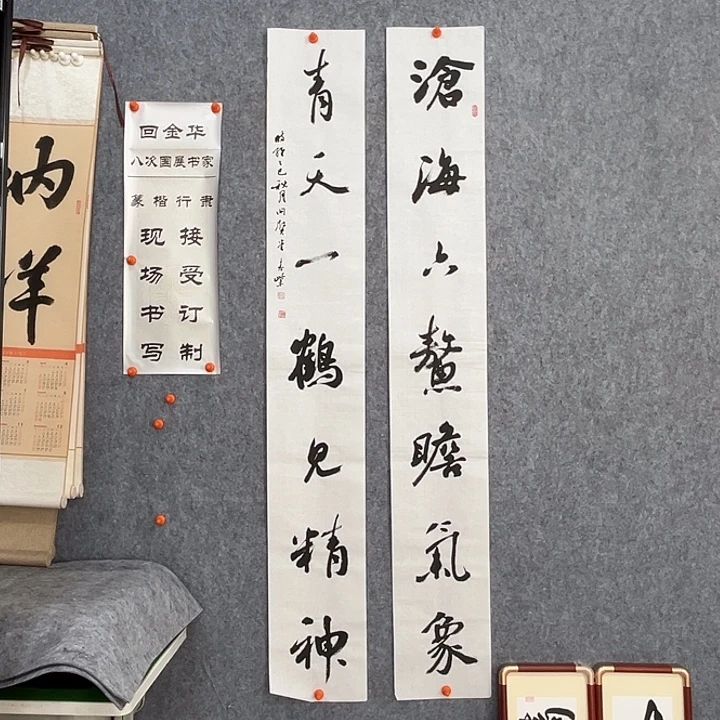 滄海六鰲瞻氣象
青天一鶴見精神
乙巳秋月
回金华
八次国展书家
篆楷行肃
现场书写
接受订制
纳祥